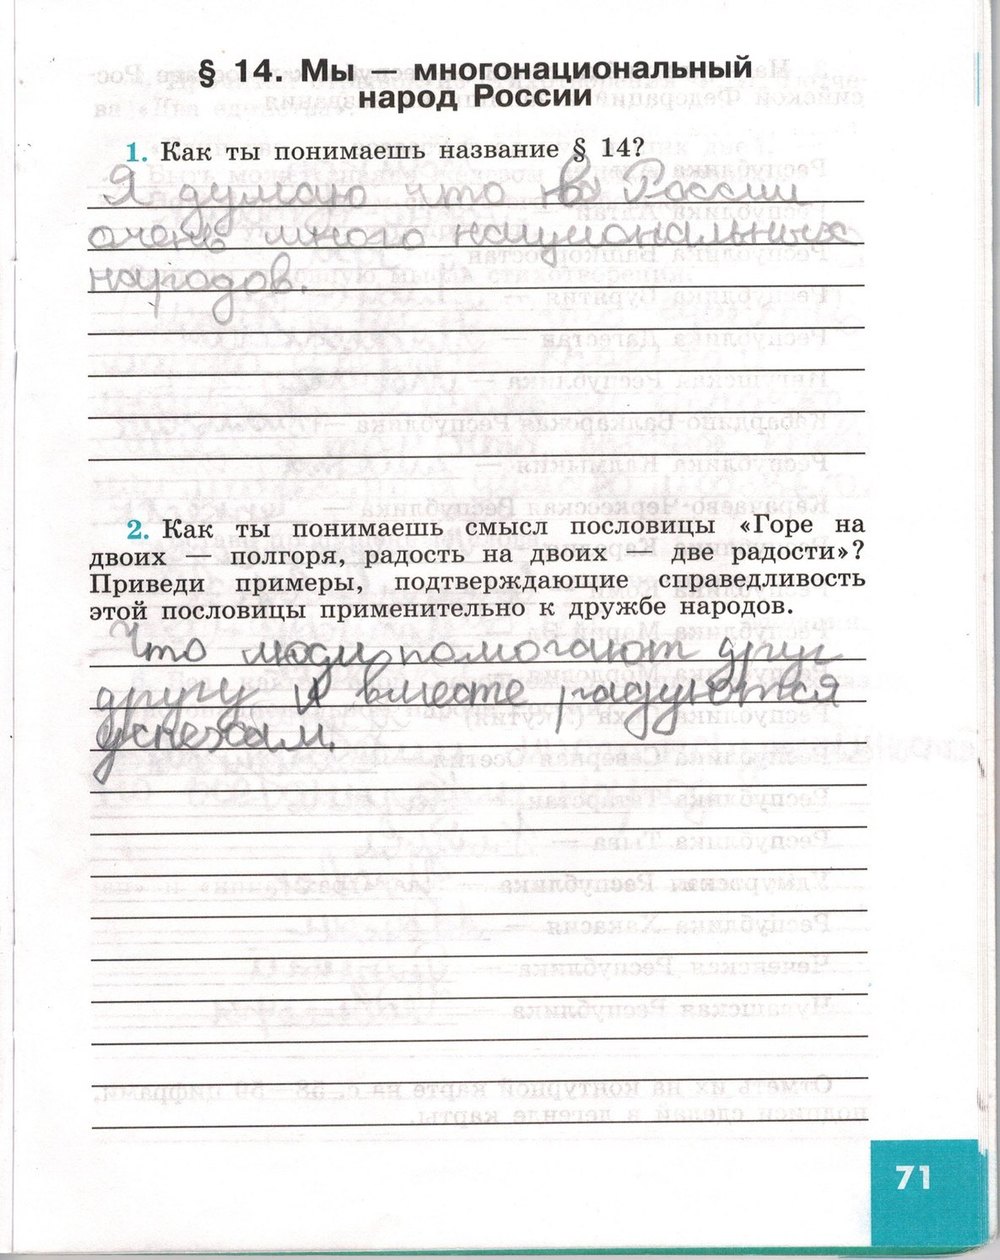 § 14. Мы — многонациональный
народ России
1. Как ты понимаешь название § 14?
Я думаю что в России
очень много национальных
народов.
2. Как ты понимаешь смысл пословицы «Горе на
двоих — полгоря, радость на двоих — две радости»?
Приведи примеры, подтверждающие справедливость
этой пословицы применительно к дружбе народов.
Что люди помогают друг
другу и вместе радуются
успехам.
71